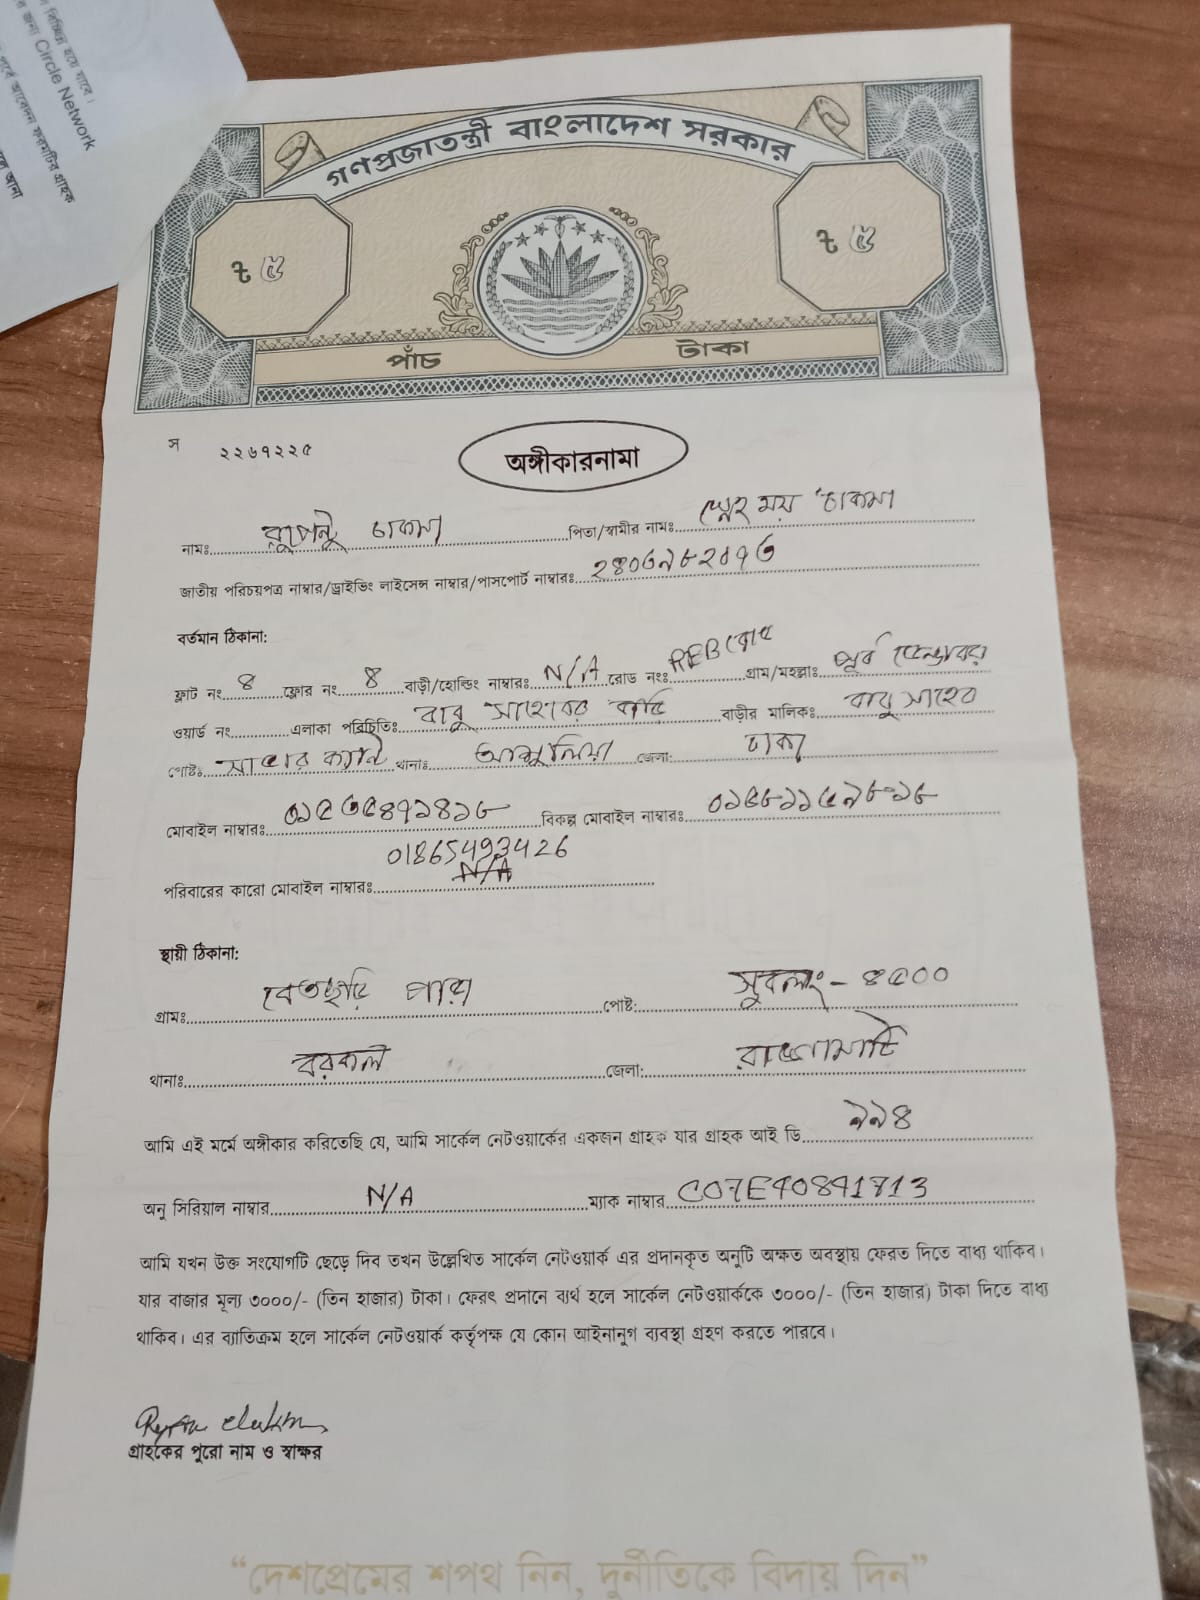 বিচ্ছিন্ন হয়ে যাবে।
র জন্য Circle Network
পর্বে আবেদন ফরমটির গ্রাহক
গণপ্রজাতন্ত্রী বাংলাদেশ সরকার
৳ ৫
৳ ৫
পাঁচ টাকা
স ২২৬৭২২৫
অঙ্গীকারনামা
নামঃ রুপেনু চাকমা পিতা/স্বামীর নামঃ স্নেহ ময় চাকমা
জাতীয় পরিচয়পত্র নাম্বার/ড্রাইভিং লাইসেন্স নাম্বার/পাসপোর্ট নাম্বারঃ ২৪০৩৯৮২০৭৩
বর্তমান ঠিকানা:
ফ্লাট নং ৪ ফ্লোর নং ৪ বাড়ী/হোল্ডিং নাম্বারঃ N/A রোড নংঃ REB রোড গ্রাম/মহল্লাঃ পূর্ব ডেন্ডাবর
ওয়ার্ড নং এলাকা পরিচিতিঃ বাবু সাহেবের বাড়ি বাড়ীর মালিকঃ বাবু সাহেব
পোষ্টঃ সাভার ক্যান্ট থানাঃ আশুলিয়া জেলা: ঢাকা
মোবাইল নাম্বারঃ ০১৫৩৫৪৭১৪১৮ বিকল্প মোবাইল নাম্বারঃ
01865493426
N/A
পরিবারের কারো মোবাইল নাম্বারঃ
স্থায়ী ঠিকানা:
গ্রামঃ বেতছড়ি পাড়া পোষ্ট: সুবলং - ৪৫০০
থানাঃ বরকল জেলা: রাঙ্গামাটি
আমি এই মর্মে অঙ্গীকার করিতেছি যে, আমি সার্কেল নেটওয়ার্কের একজন গ্রাহক যার গ্রাহক আই ডি ৯৯৪
অনু সিরিয়াল নাম্বার N/A ম্যাক নাম্বার C07E40841713
আমি যখন উক্ত সংযোগটি ছেড়ে দিব তখন উল্লেখিত সার্কেল নেটওয়ার্ক এর প্রদানকৃত অনুটি অক্ষত অবস্থায় ফেরত দিতে বাধ্য থাকিব।
যার বাজার মূল্য ৩০০০/- (তিন হাজার) টাকা। ফেরৎ প্রদানে ব্যর্থ হলে সার্কেল নেটওয়ার্ককে ৩০০০/- (তিন হাজার) টাকা দিতে বাধ্য
থাকিব। এর ব্যাতিক্রম হলে সার্কেল নেটওয়ার্ক কর্তৃপক্ষ যে কোন আইনানুগ ব্যবস্থা গ্রহণ করতে পারবে।
গ্রাহকের পুরো নাম ও স্বাক্ষর
“দেশপ্রেমের শপথ নিন, দুর্নীতিকে বিদায় দিন”